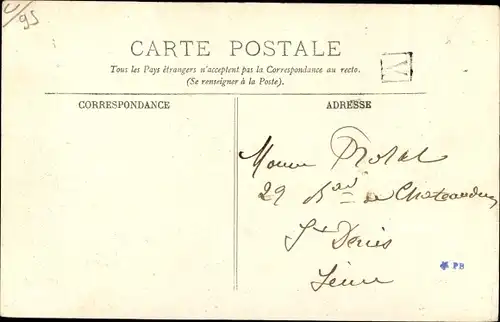 95
CARTE POSTALE
Tous les Pays étrangers n'acceptent pas la Correspondance au recto.
(Se renseigner à la Poste).
CORRESPONDANCE
ADRESSE
29 de Chateaudun
St Denis
Seine
PB